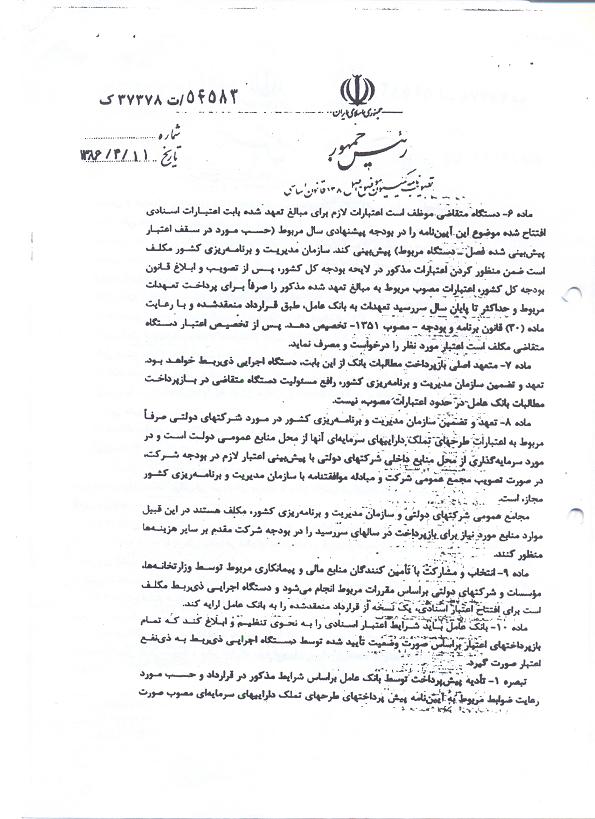 ۵۴۵۸۳/ت ۳۷۳۷۸ک
جمهوری اسلامی ایران
رئیس جمهور
شماره
تاریخ ۱۳۸۶/۴/۱۱
تصویب نامه کمیسیون موضوع اصل ۱۳۸ قانون اساسی
ماده ۶- دستگاه متقاضی موظف است اعتبارات لازم برای مبالغ تعهد شده بابت اعتبارات اسنادی
افتتاح شده موضوع این آیین‌نامه را در بودجه پیشنهادی سال مربوط (حسب مورد در سقف اعتبار
پیش‌بینی شده فصل - دستگاه مربوط) پیش‌بینی کند. سازمان مدیریت و برنامه‌ریزی کشور مکلف
است ضمن منظور کردن اعتبارات مذکور در لایحه بودجه کل کشور، پس از تصویب و ابلاغ قانون
بودجه کل کشور، اعتبارات مصوب مربوط به مبالغ تعهد شده مذکور را صرفاً برای پرداخت تعهدات
مربوط و حداکثر تا پایان سال سررسید تعهدات به بانک عامل، طبق قرارداد منعقدشده و با رعایت
ماده (۳۰) قانون برنامه و بودجه - مصوب ۱۳۵۱- تخصیص دهد. پس از تخصیص اعتبار دستگاه
متقاضی مکلف است اعتبار مورد نظر را درخواست و مصرف نماید.
ماده ۷- متعهد اصلی بازپرداخت مطالبات بانک از این بابت، دستگاه اجرایی ذی‌ربط خواهد بود.
تعهد و تضمین سازمان مدیریت و برنامه‌ریزی کشور، رافع مسئولیت دستگاه متقاضی در بازپرداخت
مطالبات بانک عامل در حدود اعتبارات مصوب، نیست.
ماده ۸- تعهد و تضمین سازمان مدیریت و برنامه‌ریزی کشور در مورد شرکتهای دولتی صرفاً
مربوط به اعتبارات طرحهای تملک داراییهای سرمایه‌ای آنها از محل منابع عمومی دولت است و در
مورد سرمایه‌گذاری از محل منابع داخلی شرکتهای دولتی با پیش‌بینی اعتبار لازم در بودجه شرکت،
در صورت تصویب مجمع عمومی شرکت و مبادله موافقتنامه با سازمان مدیریت و برنامه‌ریزی کشور
مجاز، است.
مجامع عمومی شرکتهای دولتی و سازمان مدیریت و برنامه‌ریزی کشور، مکلف هستند در این قبیل
موارد منابع مورد نیاز برای بازپرداخت در سالهای سررسید را در بودجه شرکت مقدم بر سایر هزینه‌ها
منظور کنند.
ماده ۹- انتخاب و مشارکت با تأمین کنندگان منابع مالی و پیمانکاری مربوط توسط وزارتخانه‌ها،
مؤسسات و شرکتهای دولتی براساس مقررات مربوط انجام می‌شود و دستگاه اجرایی ذی‌ربط مکلف
است برای افتتاح اعتبار اسنادی، یک نسخه از قرارداد منعقدشده را به بانک عامل ارایه کند.
ماده ۱۰- بانک عامل باید شرایط اعتبار اسنادی را به نحوی تنظیم و ابلاغ کند که تمام
بازپرداختهای اعتبار براساس صورت وضعیت تأیید شده توسط دستگاه اجرایی ذی‌ربط به ذی‌نفع
اعتبار صورت گیرد.
تبصره ۱- تأدیه پیش‌پرداخت توسط بانک عامل براساس شرایط مذکور در قرارداد و حسب مورد
رعایت ضوابط مربوط به آیین‌نامه پیش پرداختهای طرحهای تملک داراییهای سرمایه‌ای مصوب صورت